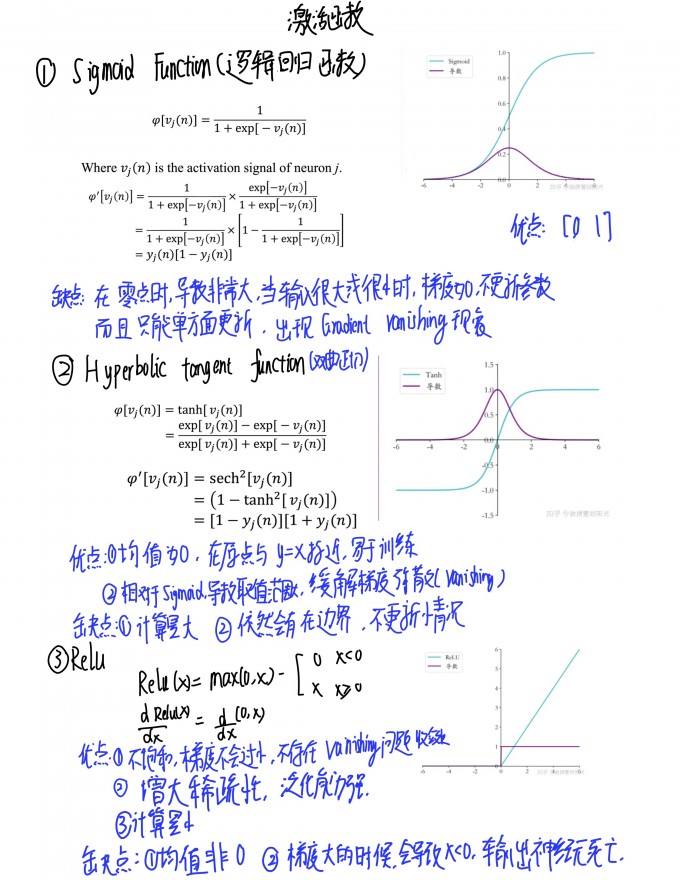 激活函数
① Sigmoid Function (逻辑回归函数)
φ[vj(n)] = 1 / (1 + exp[− vj(n)])
Where vj(n) is the activation signal of neuron j.
φ′[vj(n)] = 1 / (1 + exp[−vj(n)]) × exp[−vj(n)] / (1 + exp[−vj(n)])
= 1 / (1 + exp[−vj(n)]) × [1 − 1 / (1 + exp[−vj(n)])]
= yj(n)[1 − yj(n)]
Sigmoid
导数
1.0
0.8
0.6
0.4
0.2
0.0
-6 -4 -2 0 2 4 6
优点: [0 1]
缺点: 在零点时,导数非常大,当输入很大或很小时,梯度为0,不更新参数
而且只能单方面更新,出现 Gradient vanishing 现象
② Hyperbolic tangent function (双曲正切)
φ[vj(n)] = tanh[vj(n)]
= (exp[vj(n)] − exp[− vj(n)]) / (exp[vj(n)] + exp[− vj(n)])
φ′[vj(n)] = sech²[vj(n)]
= (1 − tanh²[vj(n)])
= [1 − yj(n)][1 + yj(n)]
Tanh
导数
1.5
1.0
0.5
0.0
-0.5
-1.0
-1.5
-6 -4 -2 0 2 4 6
优点:①均值为0,在原点与 y=x 接近,易于训练
②相对于Sigmoid,导数取值范围大,缓解梯度弥散(vanishing)
缺点:①计算量大 ②依然会有在边界,不更新情况
③Relu
Relu(x)= max(0,x) - [ 0 x<0
x x⩾0
d Relu(x) / dx = d / dx (0,x)
ReLU
导数
6
5
4
3
2
1
0
-6 -4 -2 0 2 4 6
优点:①不饱和,梯度不会过小,不存在 vanishing 问题
② 增大稀疏性,泛化能力强.
③计算量小
缺点:①均值非0 ②梯度大的时候,会导致x<0,输出神经元死亡.